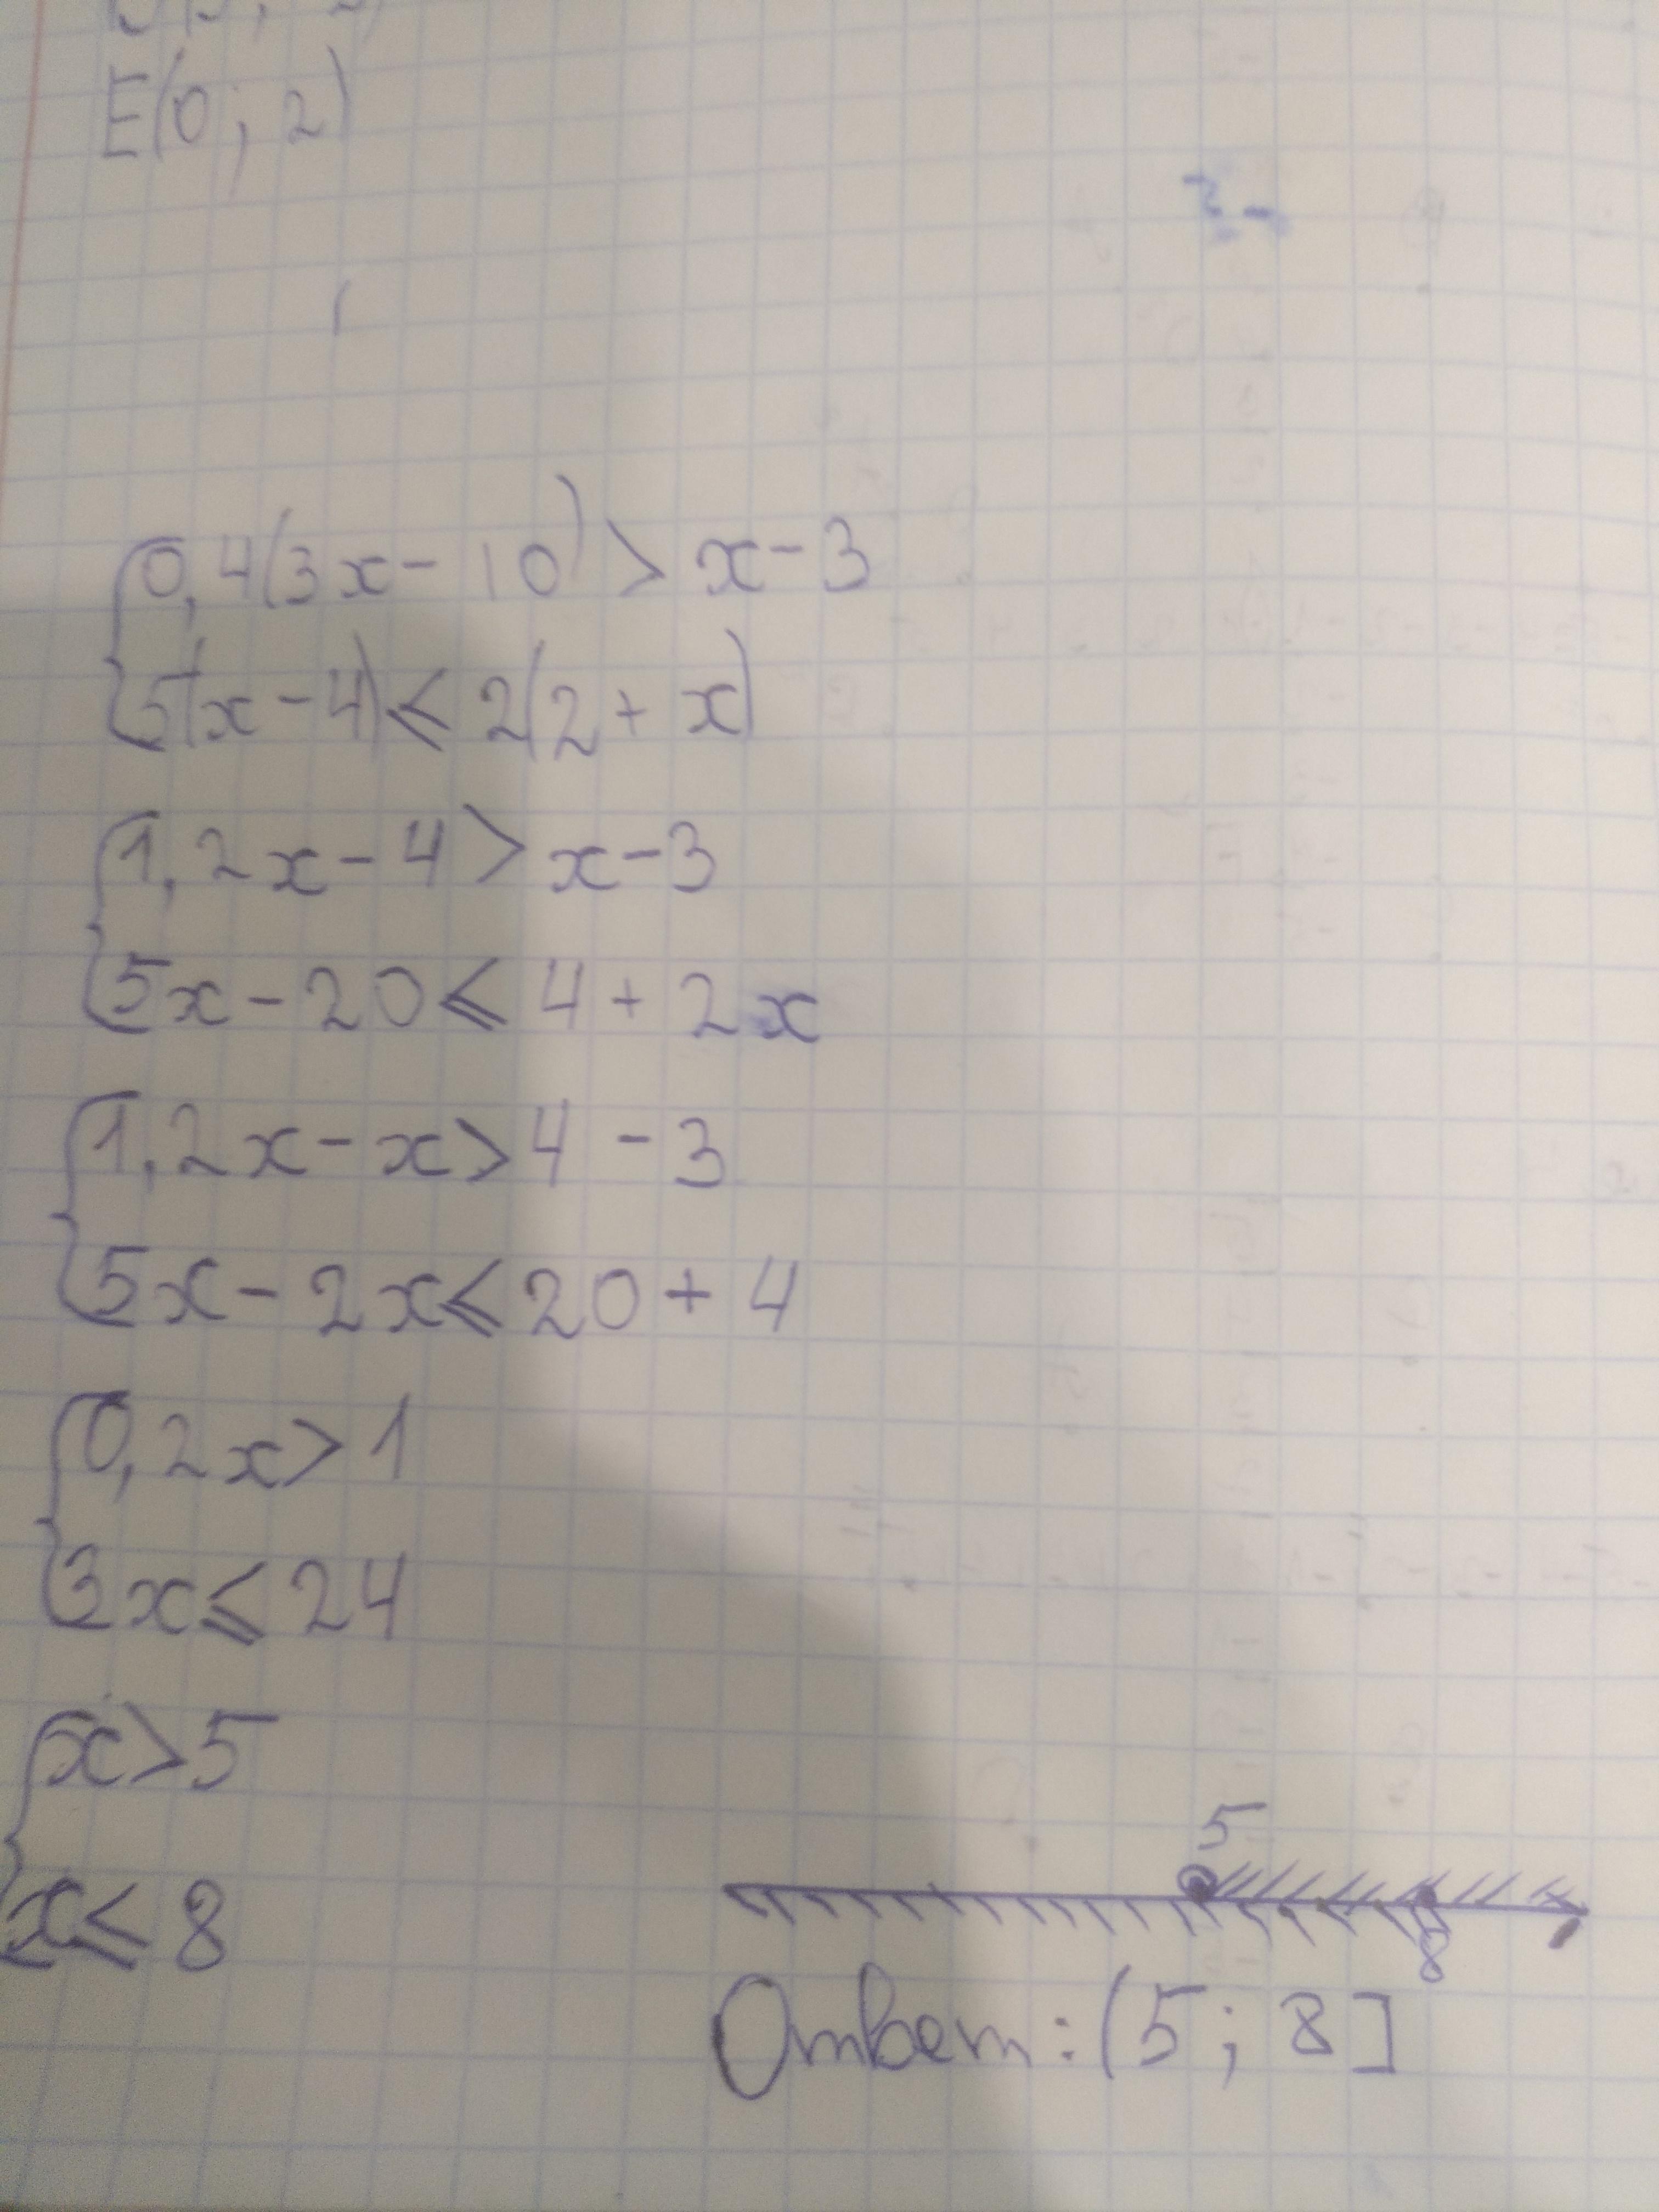 E(0; 2)
0,4(3x-10) > x-3
5(x-4) ⩽ 2(2+x)
1,2x-4 > x-3
5x-20 ⩽ 4+2x
1,2x-x > 4-3
5x-2x ⩽ 20+4
0,2x > 1
3x ⩽ 24
x > 5
x ⩽ 8
5
8
Ответ: (5; 8]